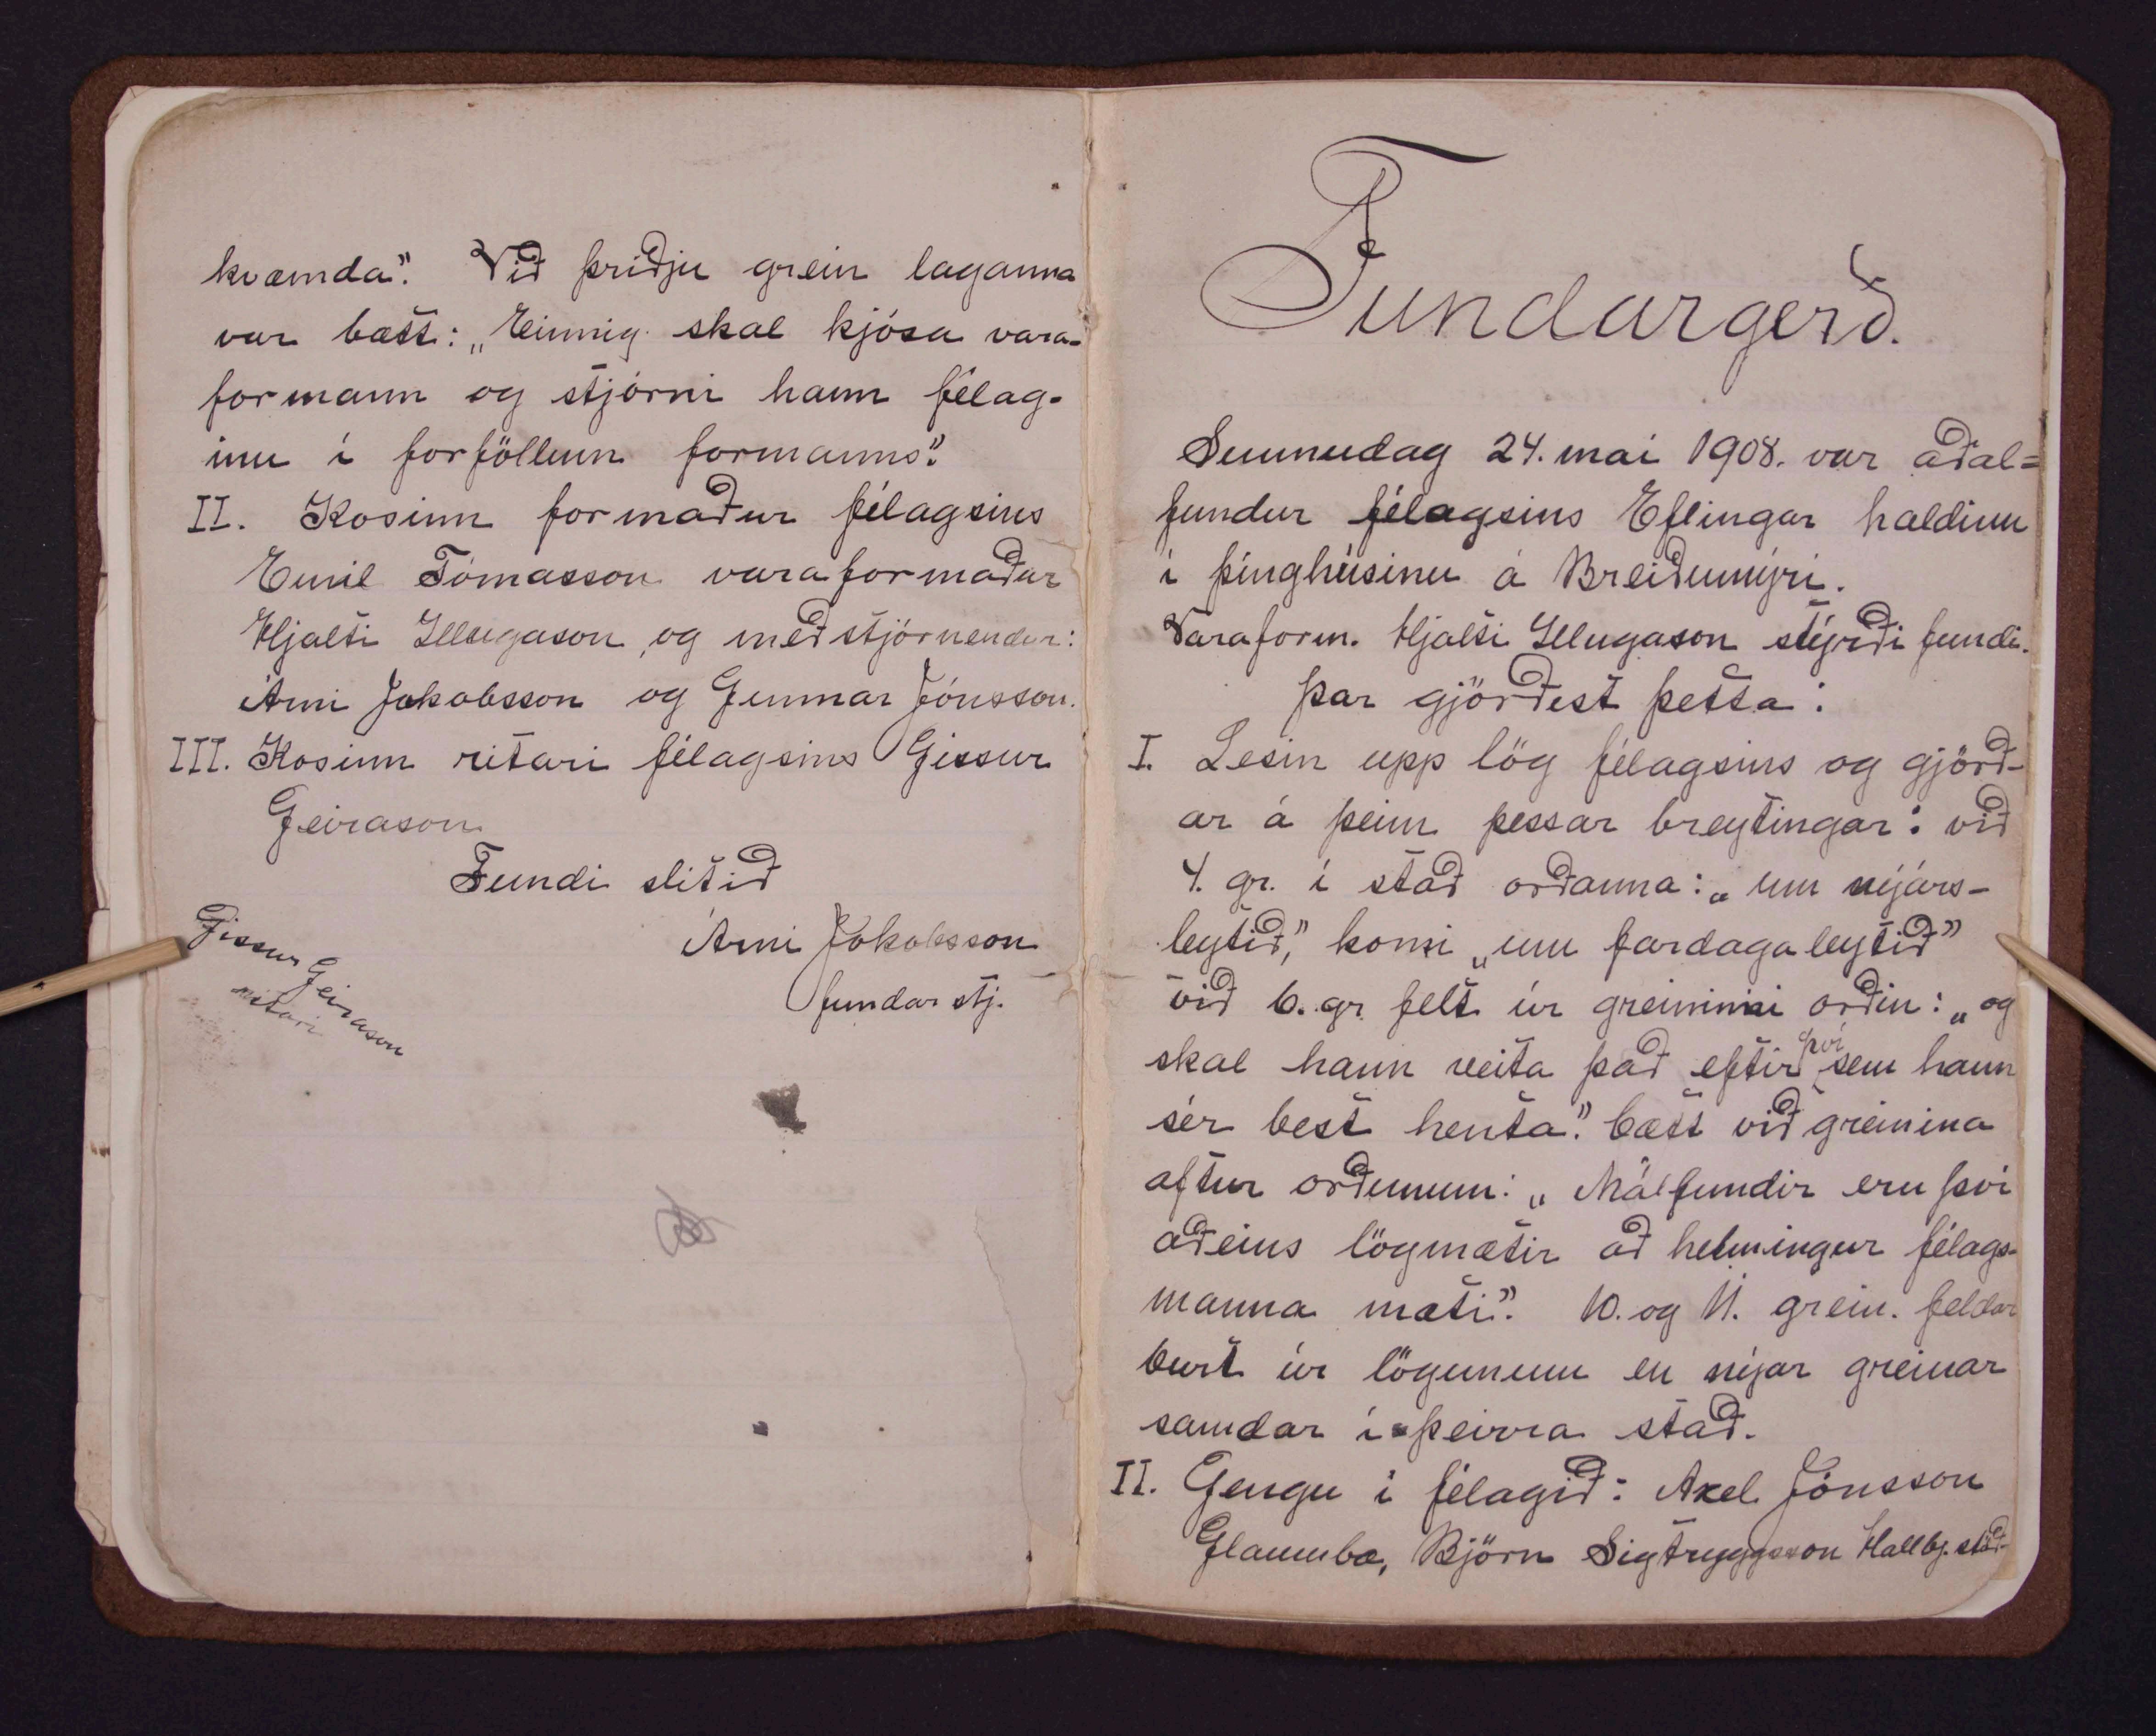 kvæmda". Við þriðju grein laganna
var bætt: „Einnig skal kjósa vara-
formann og stjórni hann félag-
inu í forföllum formanns".
II. Kosinn formaður félagsins
Emil Tómasson varaformaður
Hjalti Illugason, og meðstjórnendur:
Árni Jakobsson og Gunnar Jónsson.
III. Kosinn ritari félagsins Gissur
Geirason
Fundi slitið
Árni Jakobsson
fundarstj.
Gissur Geirason
ritari
Fundargerð.
Sunnudag 24. maí 1908. var aðal=
fundur félagsins Eflingar haldinn
í þinghúsinu á Breiðumýri.
Varaform. Hjalti Illugason stýrði fundi.
Þar gjörðist þetta:
I. Lesin upp lög félagsins og gjörð-
ar á þeim þessar breytingar: við
4. gr. í stað orðanna: „um nýjárs-
leytið," komi „um fardagaleytið"
við 6. gr. felt úr greininni orðin: „og
skal hann veita það eftir því sem hann
sér best henta." bætt við greinina
aftur orðunum: „Málfundir eru því
aðeins lögmætir að helmingur félags-
manna mæti". 10. og 11. grein. feldar
burt úr lögunum en nýjar greinar
samdar í þeirra stað.
II. Gengu í félagið: Axel Jónsson
Glaumbæ, Björn Sigtryggsson Hallbj.stöð-